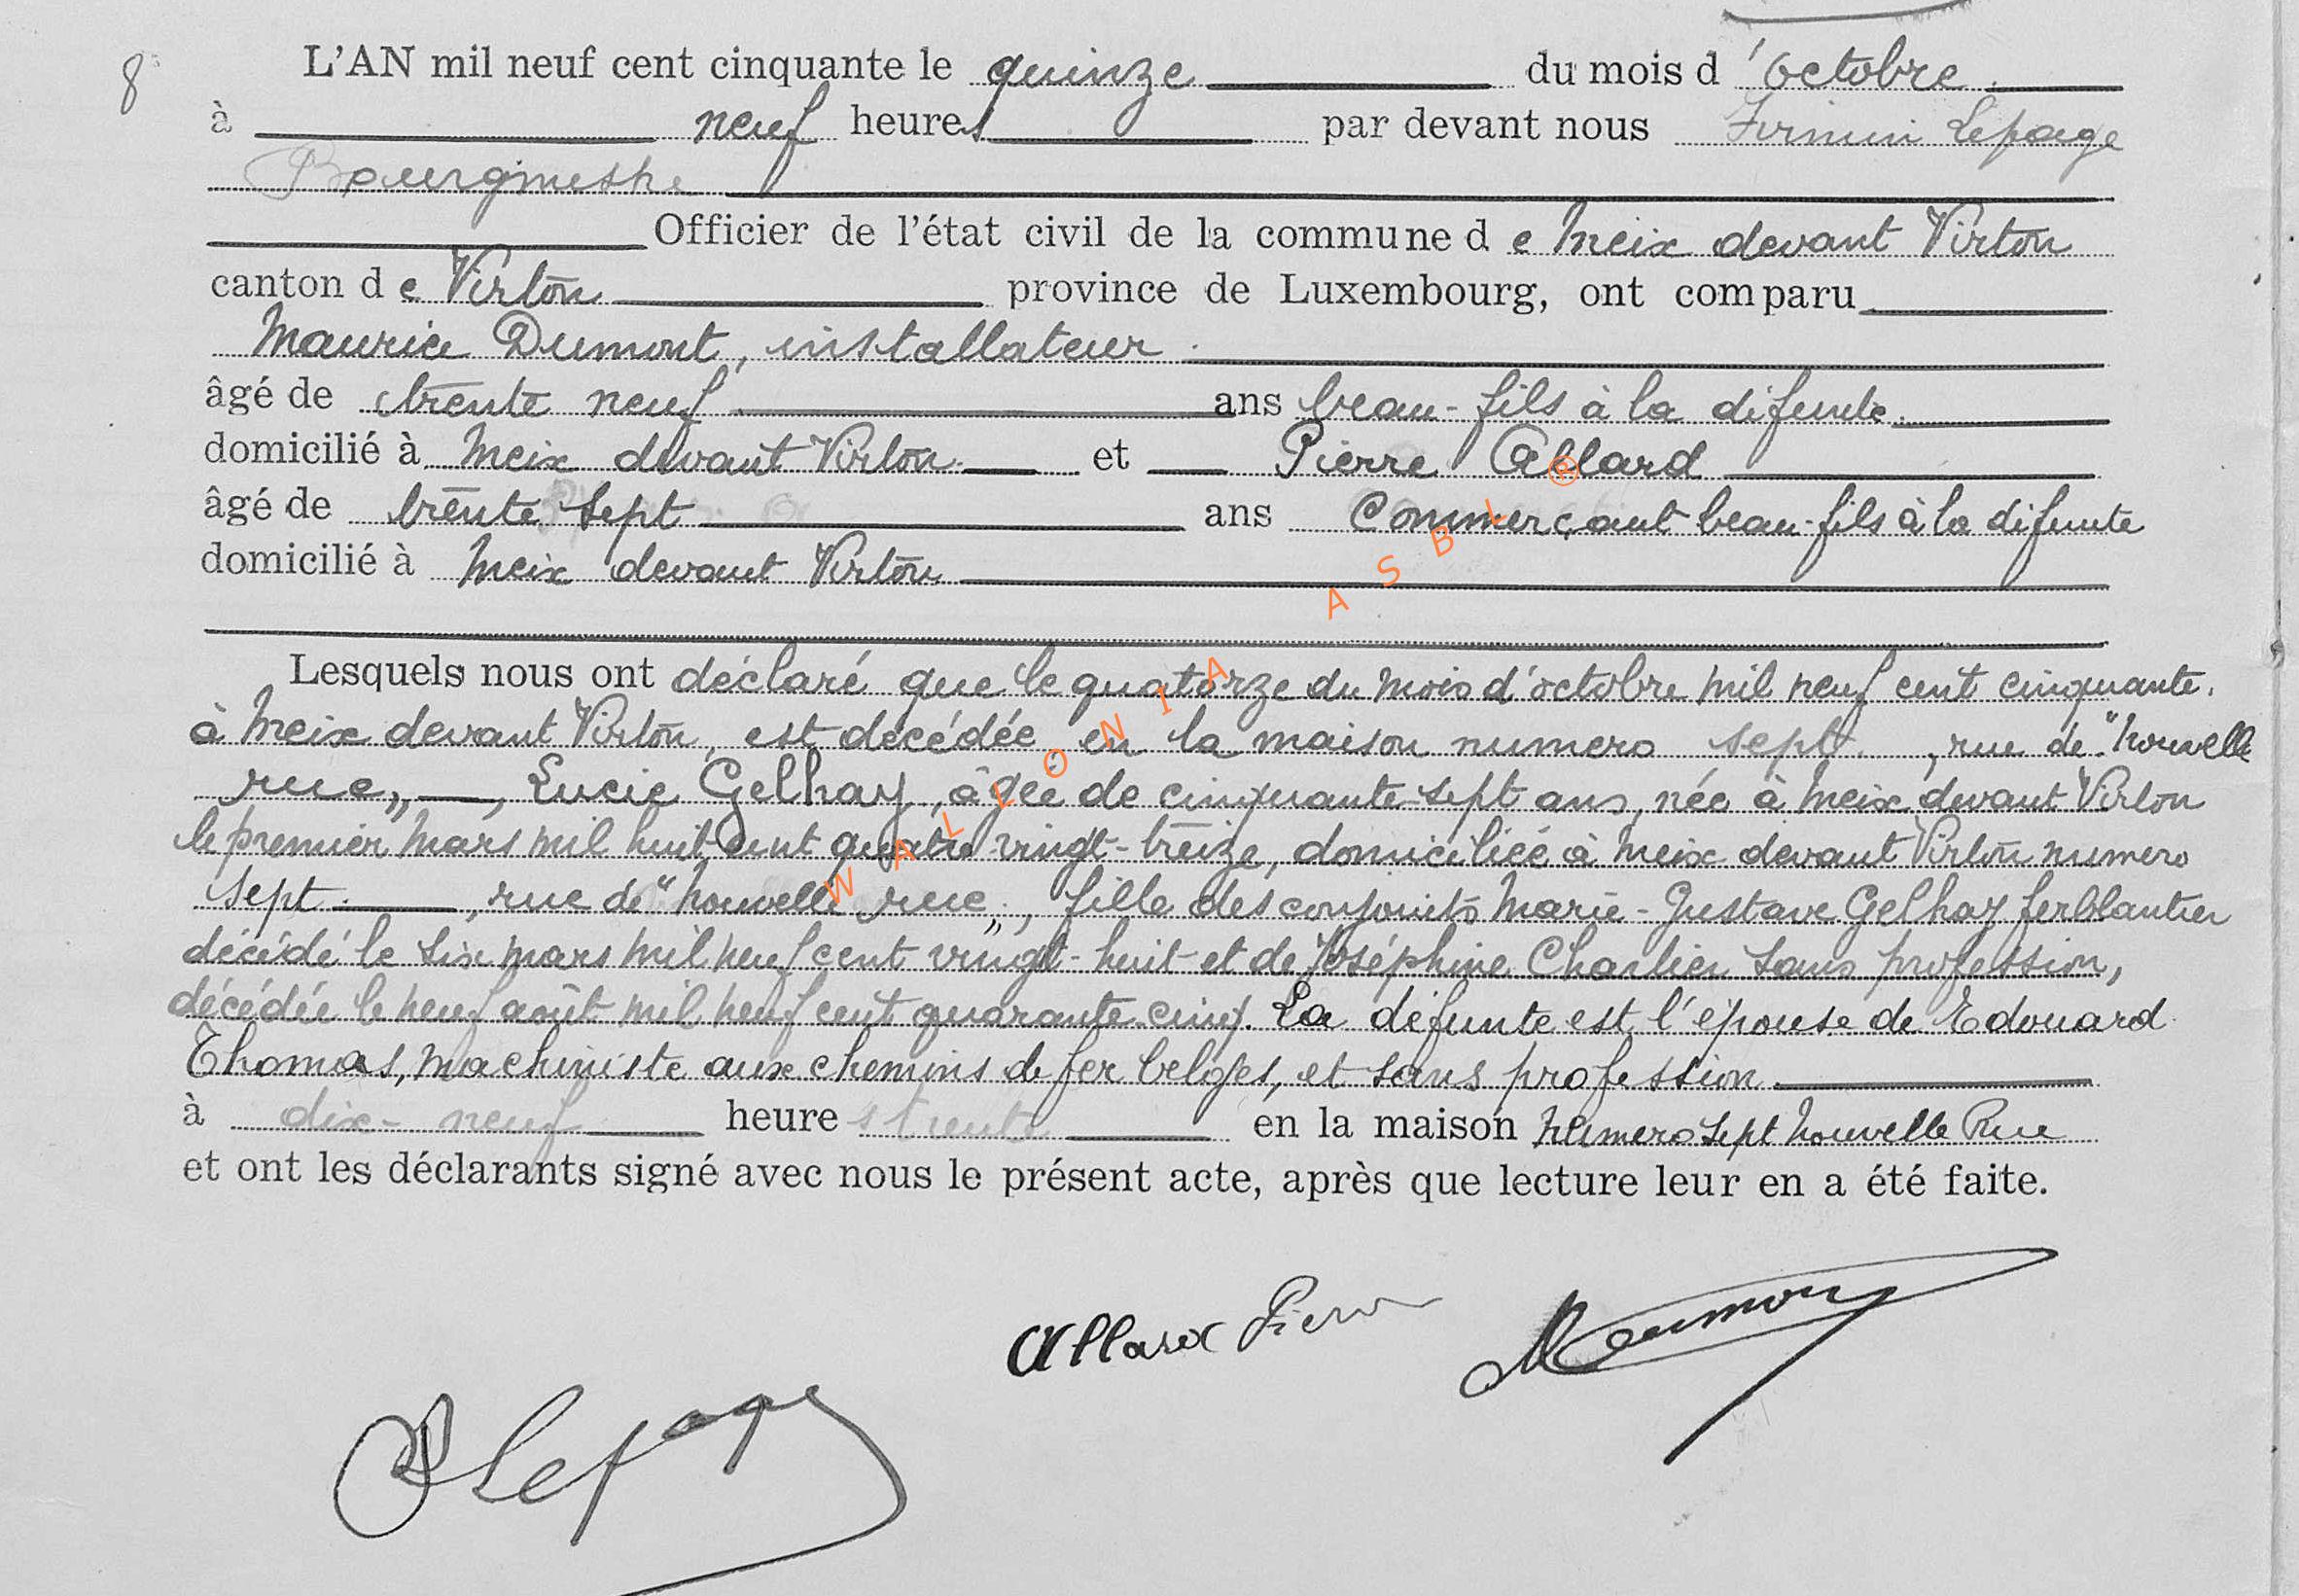 8
L'AN mil neuf cent cinquante le quinze du mois d'octobre
à neuf heures par devant nous Firmin Lepage
Bourgmestre
Officier de l'état civil de la commune de Meix devant Virton
canton de Virton province de Luxembourg, ont comparu
Maurice Dumont, installateur
âgé de trente neuf ans beau-fils à la défunte
domicilié à Meix devant Virton et Pierre Allard
âgé de trente sept ans Commerçant beau-fils à la défunte
domicilié à Meix devant Virton
Lesquels nous ont déclaré que le quatorze du mois d'octobre mil neuf cent cinquante.
à Meix devant Virton, est décédée en la maison numero sept, rue de "Nouvelle
rue", Lucie Gelhay, âgée de cinquante-sept ans, née à Meix devant Virton
le premier mars mil huit cent quatre vingt-treize, domiciliée à Meix devant Virton numero
sept, rue de "Nouvelle rue", fille des conjoints Marie-Gustave Gelhay ferblantier
décédé le six mars mil neuf cent vingt-huit et de Joséphine Charlier sans profession,
décédée le neuf août mil neuf cent quarante-cinq. La défunte est l'épouse de Edouard
Thomas, machiniste aux chemins de fer belges, et sans profession
à dix-neuf heures trente en la maison numero sept Nouvelle Rue
et ont les déclarants signé avec nous le présent acte, après que lecture leur en a été faite.
Allard Pierre MDumont
Lepage
WALLONIA ASBL ®